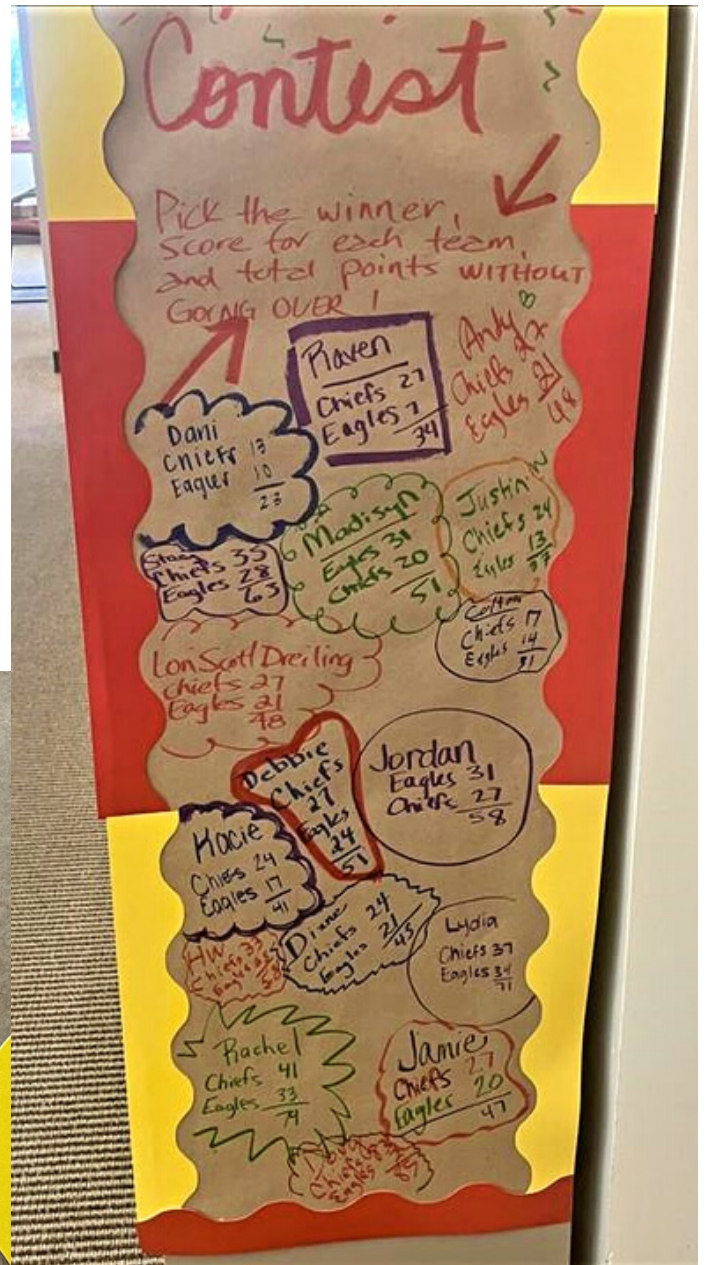 Contest
Pick the winner,
score for each team,
and total points WITHOUT
GOING OVER!
Raven
Chiefs 27
Eagles 7
34
Andy
Chiefs 27
Eagles 21
48
Dani
Chiefs 13
Eagles 10
23
Madisyn
Eagles 31
Chiefs 20
51
Justin W
Chiefs 24
Eagles 13
37
Stacy
Chiefs 35
Eagles 28
63
Colton
Chiefs 17
Eagles 14
31
Lori Scott Dreiling
Chiefs 27
Eagles 21
48
Debbie
Chiefs
27
Eagles
24
51
Jordan
Eagles 31
Chiefs 27
58
Kacie
Chiefs 24
Eagles 17
41
Diane
Chiefs 24
Eagles 21
45
Lydia
Chiefs 37
Eagles 34
71
HW
Chiefs 33
Eagles
58
Rachel
Chiefs 41
Eagles 33
74
Jamie
Chiefs 27
Eagles 20
47
Chiefs
Eagles